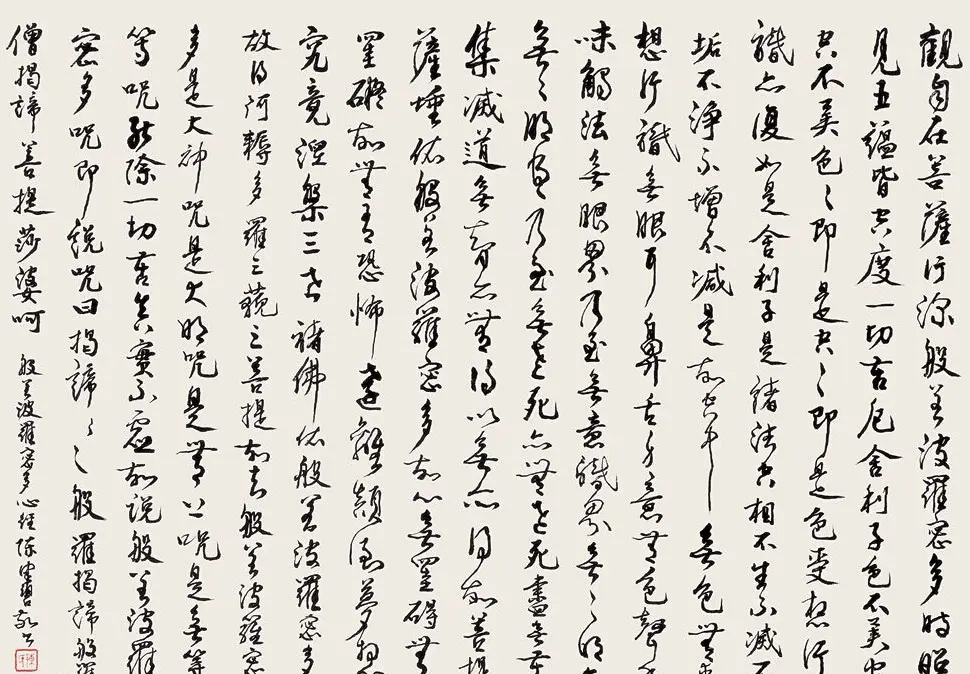 觀自在菩薩行深般若波羅密多時照
見五蘊皆空度一切苦厄舍利子色不異空
空不異色〻即是空〻即是色受想行
識亦復如是舍利子是諸法空相不生不滅不
垢不淨不增不減是故空中無色無受
想行識無眼耳鼻舌身意無色聲香
味觸法無眼界乃至無意識界無〻明亦
無〻明盡乃至無老死亦無老死盡無苦
集滅道無智亦無得以無所得故菩提
薩埵依般若波羅密多故心無罣碍無
罣礙故無有恐怖遠離顛倒夢想
究竟涅槃三世諸佛依般若波羅密多
故得阿耨多羅三藐三菩提故知般若波羅密
多是大神咒是大明咒是無上咒是無等
等咒能除一切苦真實不虛故說般若波羅
密多咒即說咒曰揭諦〻〻般羅揭諦般羅
僧揭諦菩提莎婆呵
般若波羅密多心經陳敬書